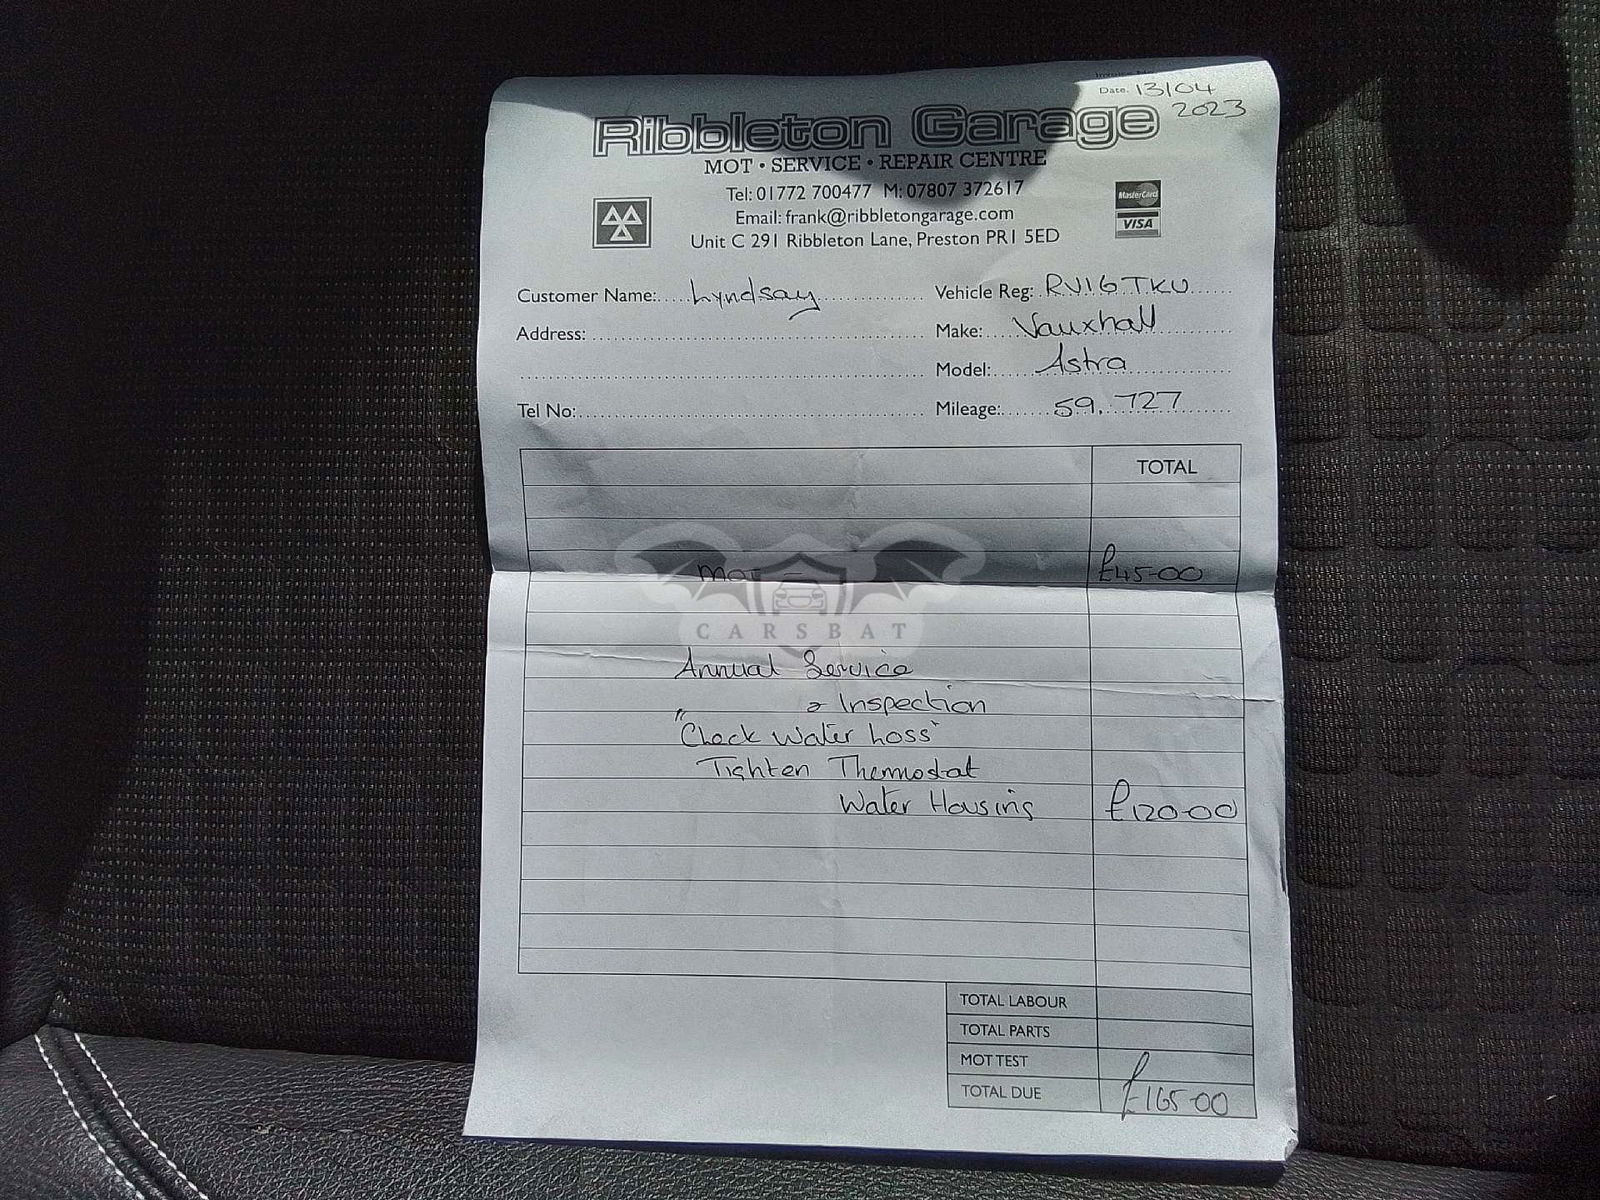 Date. 13/04
2023
Ribbleton Garage
MOT • SERVICE • REPAIR CENTRE
Tel: 01772 700477 M: 07807 372617
Email: frank@ribbletongarage.com
Unit C 291 Ribbleton Lane, Preston PR1 5ED
MasterCard
VISA
Customer Name: Lyndsay Vehicle Reg: RV16TKU
Address: Make: Vauxhall
Model: Astra
Tel No: Mileage: 59,727
TOTAL
MOT — £45-00
CARSBAT
Annual Service
& Inspection
"Check Water Loss"
Tighten Thermostat
Water Housing £120-00
TOTAL LABOUR
TOTAL PARTS
MOT TEST
TOTAL DUE £165-00